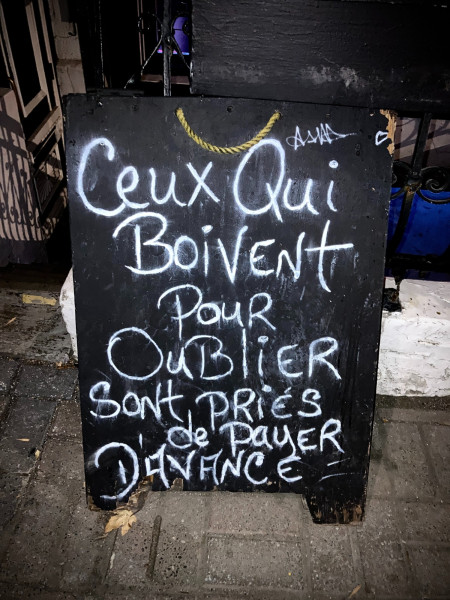 Ceux Qui
BoiVENt
Pour
OuBliER
Sont priés
de payer
D'AVANCE =